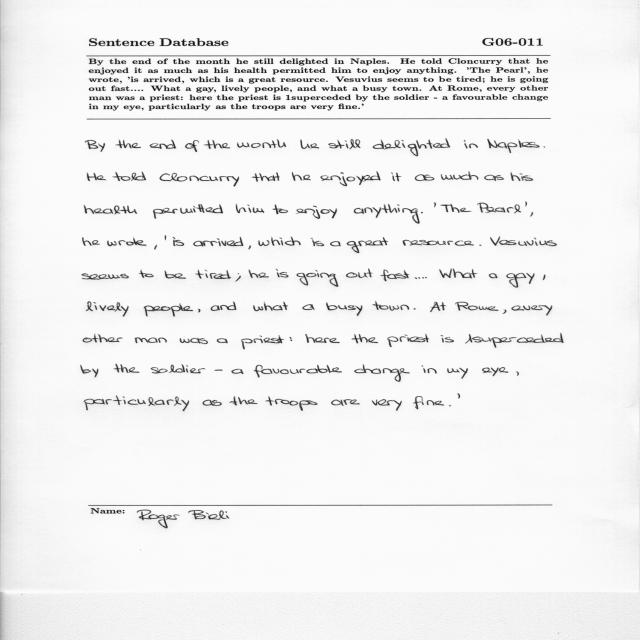 Sentence Database G06-011
By the end of the month he still delighted in Naples. He told Cloncurry that he
enjoyed it as much as his health permitted him to enjoy anything. 'The Pearl', he
wrote, 'is arrived, which is a great resource. Vesuvius seems to be tired; he is going
out fast.... What a gay, lively people, and what a busy town. At Rome, every other
man was a priest: here the priest is 1superceded by the soldier - a favourable change
in my eye, particularly as the troops are very fine.'
By the end of the month he still delighted in Naples.
He told Cloncurry that he enjoyed it as much as his
health permitted him to enjoy anything. 'The Pearl',
he wrote, 'is arrived, which is a great resource. Vesuvius
seems to be tired; he is going out fast.... What a gay,
lively people, and what a busy town. At Rome, every
other man was a priest: here the priest is 1superceded
by the soldier - a favourable change in my eye,
particularly as the troops are very fine.'
Name: Roger Bieli